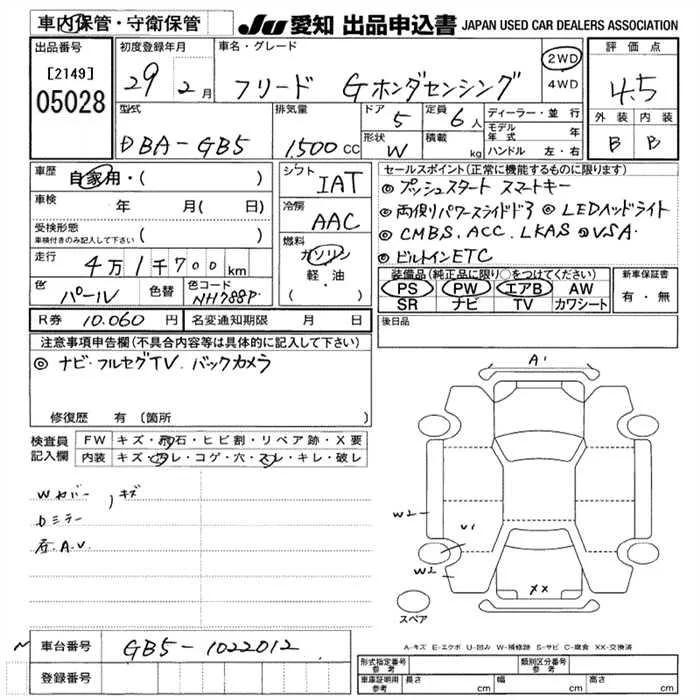 車内保管・守衛保管
JU 愛知 出品申込書 JAPAN USED CAR DEALERS ASSOCIATION
出品番号
[2149]
05028
初度登録年月
29 2月
車名・グレード
フリード Gホンダセンシング
2WD
4WD
評価点
4.5
外装 内装
B B
型式
DBA-GB5
排気量
1,500 CC
ドア
5
定員
6人
形状
W
積載
kg
ディーラー・並行
モデル年式 年
ハンドル 左・右
車歴
自家用・( )
車検
年 月( 日)
受検形態
車検付きのみ記入して下さい ( )
走行
4万1千700km
色
パール
色替
色コード
NH788P
シフト
IAT
冷房
AAC
燃料
ガソリン
軽・油
( ・ )
セールスポイント(正常に機能するものに限ります)
◎プッシュスタート スマートキー
◎両側パワースライドドア ◎LEDヘッドライト
◎CMBS.ACC.LKAS ◎VSA
◎ビルトインETC
装備品(純正品に限り○をつけてください)
PS PW エアB AW
SR ナビ TV カワシート
新車保証書
有・無
R券 10.060円 名変通知期限 月 日
後日品
注意事項申告欄(不具合内容等は具体的に記入して下さい)
◎ナビ・フルセグTV.バックカメラ
修復歴 有(箇所
検査員記入欄
FW キズ・飛石・ヒビ割・リペア跡・X要
内装 キズ・汚レ・コゲ・穴・スレ・キレ・破レ
Wカバー キズ
Dミラー
A.V.
A1
W2
U1
W2
XX
スペア
A-キズ E-エクボ U-凹み W-補修跡 S-サビ C-腐食 XX-交換済
車台番号 GB5-1022012
登録番号
形式指定番号 参考
類別区分番号 参考
車庫証明用 参考
長さ cm
幅 cm
高さ cm